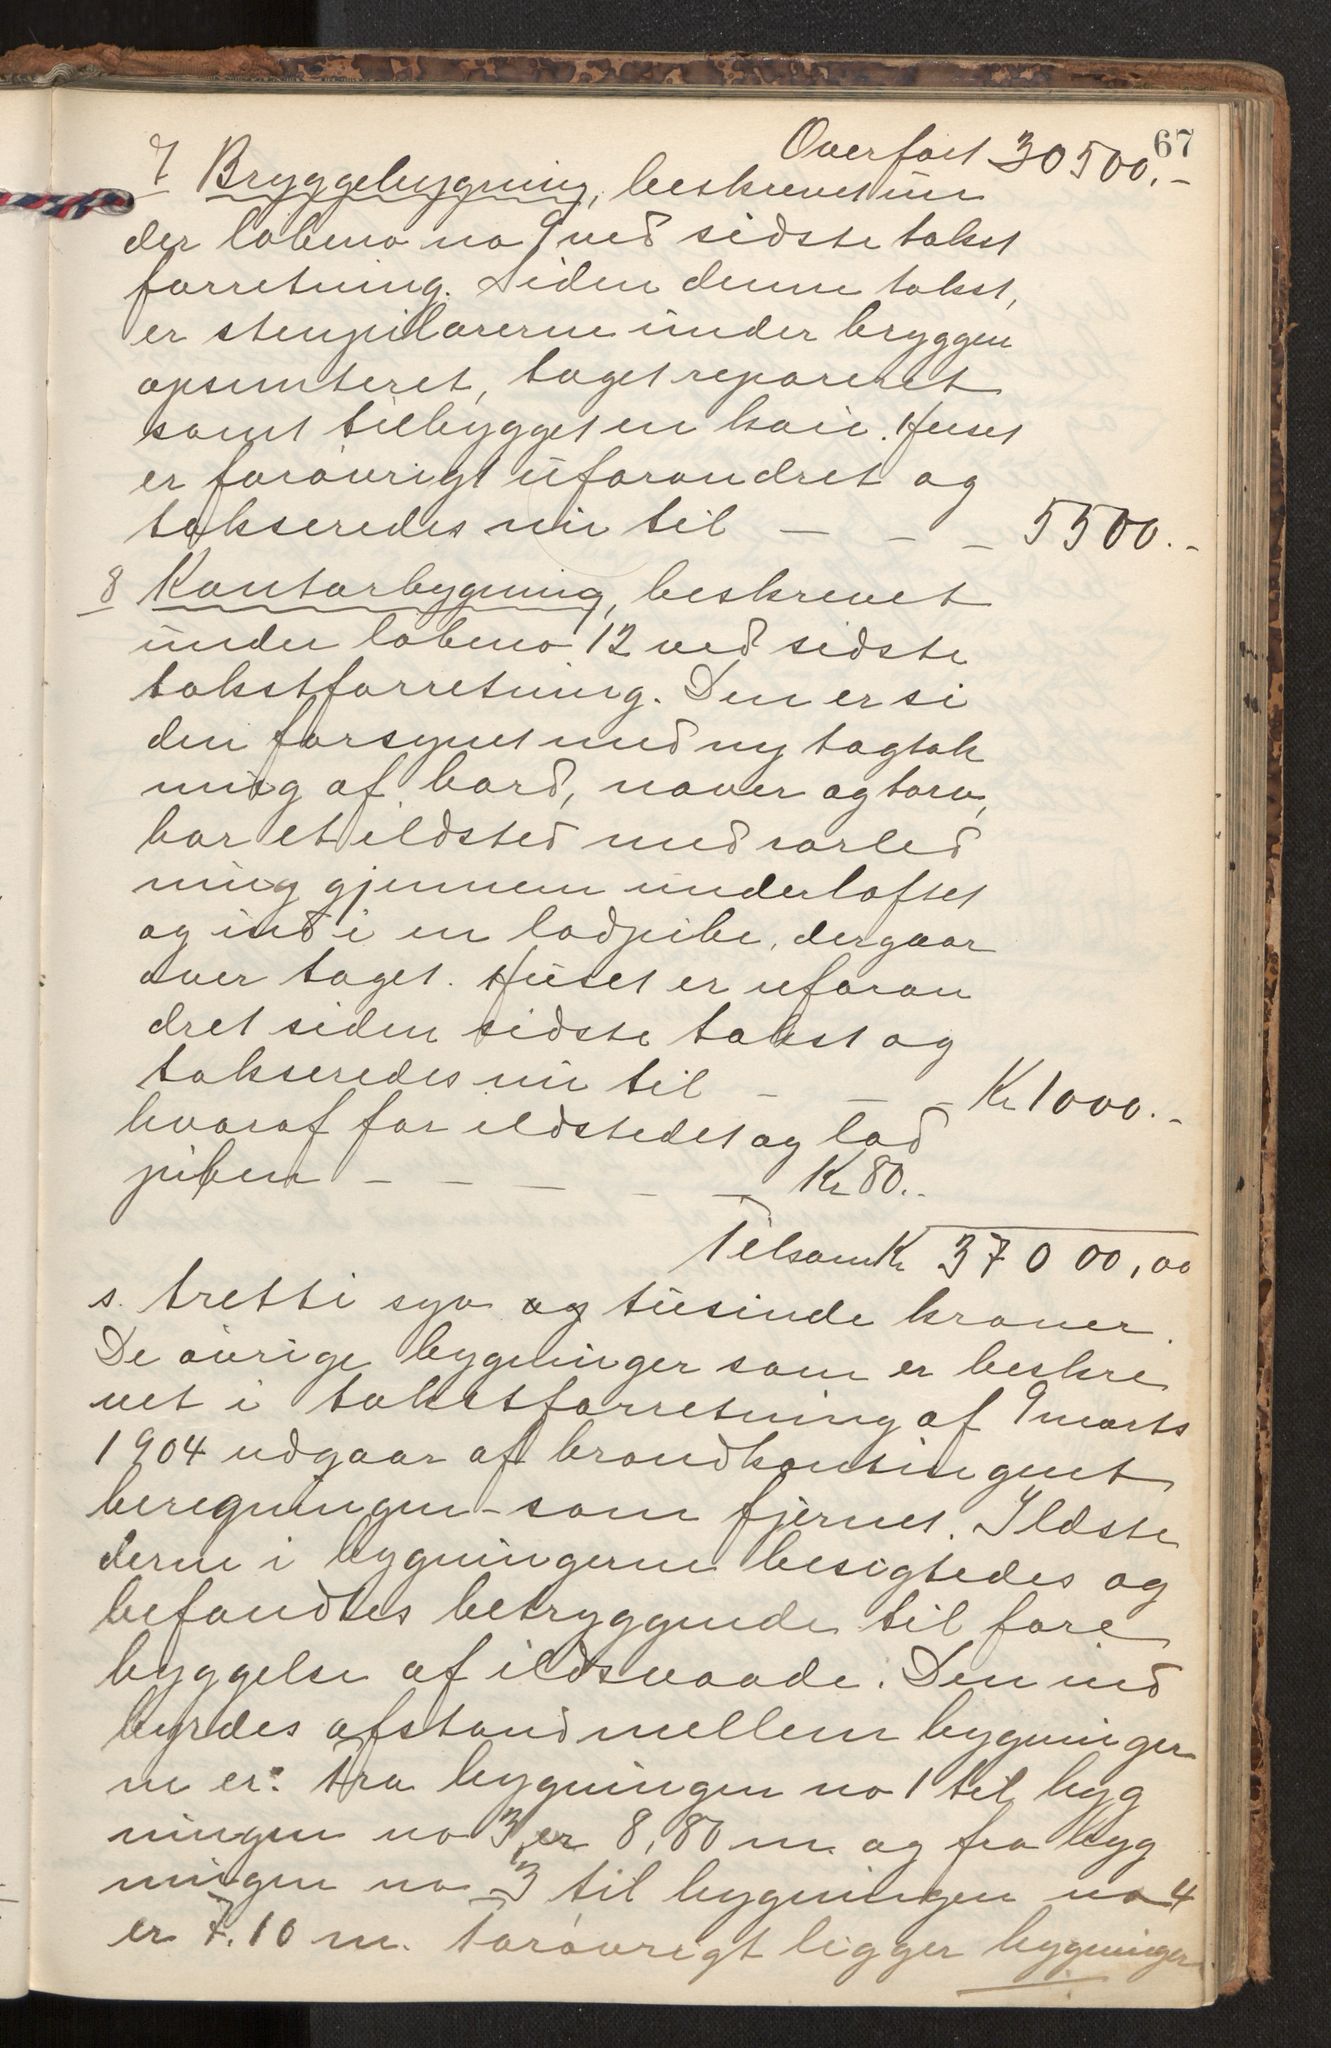 67
Overført 30500.-
7 Bryggebygning, beskrevet un
der løbeno no 9 ved sidste takst
forretning. Siden denne takst,
er stenpilarerne under bryggen
opsunteret, taget repareret
samt tilbygget en kai. Huset
er forøvrigt uforandret og
takseredes nu til – – – 5500.-
8 Kontorbygning, beskrevet
under løbeno 12 ved sidste
takstforretning. Den er si
den forsynet med ny tagtæk
ning af bord, næver og torv,
har et ildsted med rørled
ning gjennem underloftet
og ind i en lodpibe, der gaar
over taget. Huset er uforan
dret siden sidste takst og
takseredes nu til – – – Kr 1000.-
hvoraf for ildstedet og lod
piben – – – – – Kr 80.-
Tilsam Kr 37000,00
s. tretti syv og tusinde kroner.
De øvrige bygninger som er beskre
vet i takstforretning af 9 marts
1904 udgaar af brandkontingent
beregningen – som fjernet. Ildste
derne i bygningerne besigtedes og
befandtes betryggende til fore
byggelse af ildsvaade. Den ind
byrdes afstand mellem bygninger
ne er: fra bygningen no 1 til byg
ningen no 3 er 8,80 m og fra byg
ningen no 3 til bygningen no 4
er 7.10 m. Forøvrigt ligger bygninger